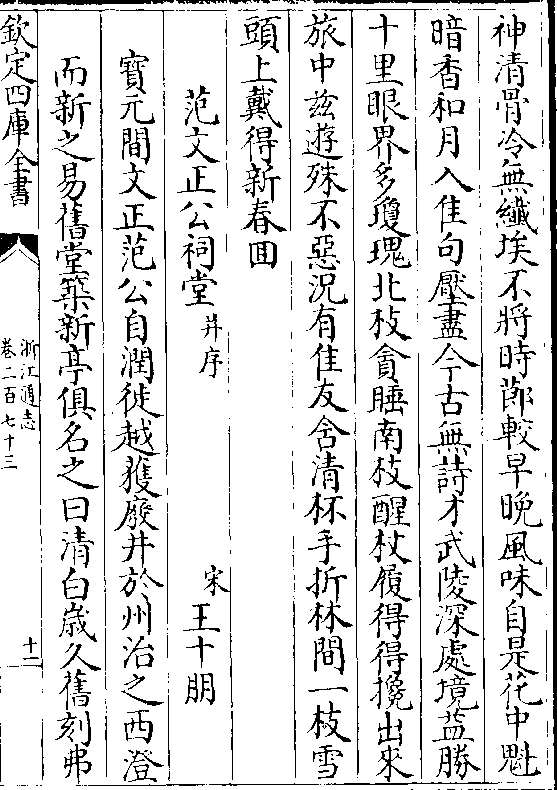 神清骨冷無纖埃不將時節較早晚風味自是花中魁
暗香和月入佳句壓盡今古無詩才武陵深處境益勝
十里眼界多瓊瑰北枝貪睡南枝醒杖履得得攙出來
旅中玆遊殊不惡況有佳友含清杯手折林間一枝雪
頭上戴得新春回
范文正公祠堂并序
宋 王十朋
寶元間文正范公自潤徙越獲廢井於州治之西澄
而新之易舊堂築新亭俱名之曰清白歲久舊刻弗
欽定四庫全書
浙江通志
卷二百七十三
十二